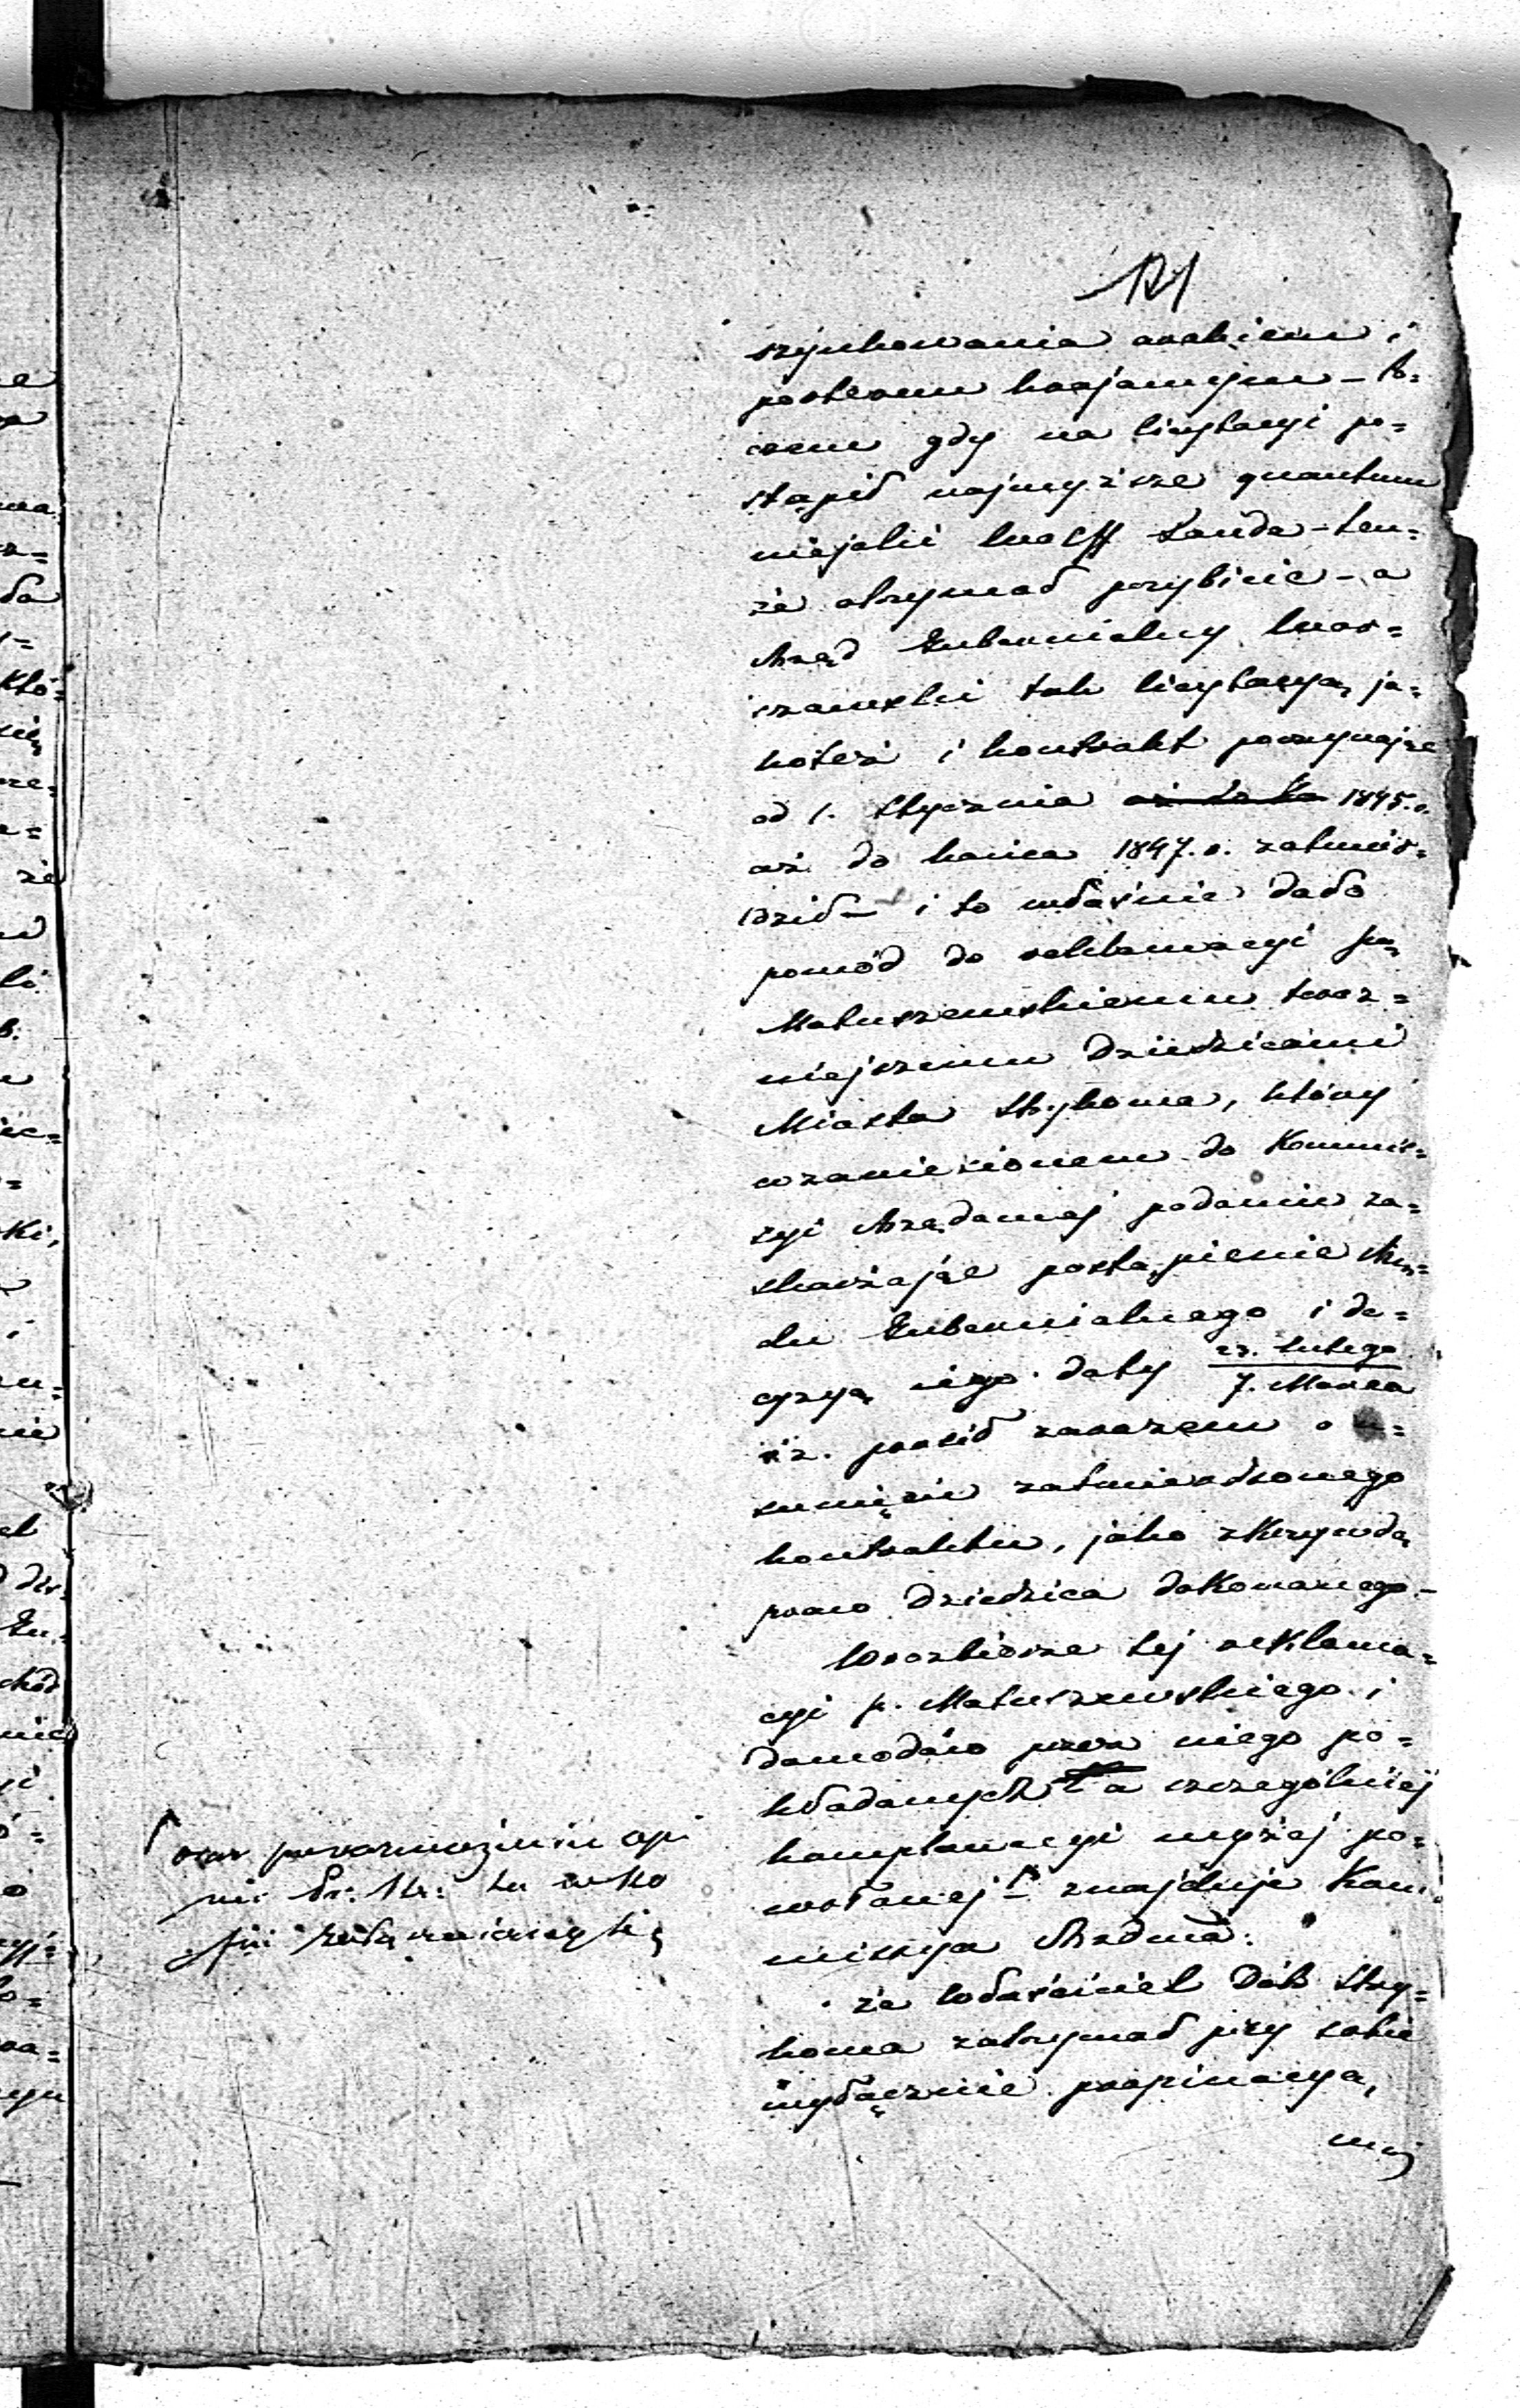 121
szynkowania arakiem i
porterem krajowym – Po=
czem gdy na licytacyi po=
stąpił najwyższe quantum
niejaki Wolff Landa – ten=
że otrzymał przybicie – a
Rząd Gubernialny War=
szawski tak licytacyą ja=
koteż i kontrakt poczynając
od 1. Stycznia 1845. r.
aż do końca 1847. r. zatwier=
dził – i to właśnie dało
powód do reklamacyi p.
Matuszewskiemu teraz=
niejszemu Dziedzicowi
Miasta Strykowa, który
wzaniesionem do Kommis=
syi Rządowej podaniu za=
skarżając postąpienie Rzą=
du Gubernialnego i de=
cyzyą iego daty 23. Lutego
7. Marca
r.z. prosił zarazem o u=
sunięcie zatwierdzonego
kontraktu, jako zkrzywdą
praw Dziedzica dokonanego. –
Wrozbiorze tej reklama=
cyi p. Matuszewskiego i
dowodów przez niego po=
kładanych a szczególniej
komplanacyi wyżej po=
wołanej znajduje Kom=
missya Rządowa:
że Właściciel Dóbr Stry=
kowa zatrzymał przy sobie
wyłącznie propinacyą,
oraz